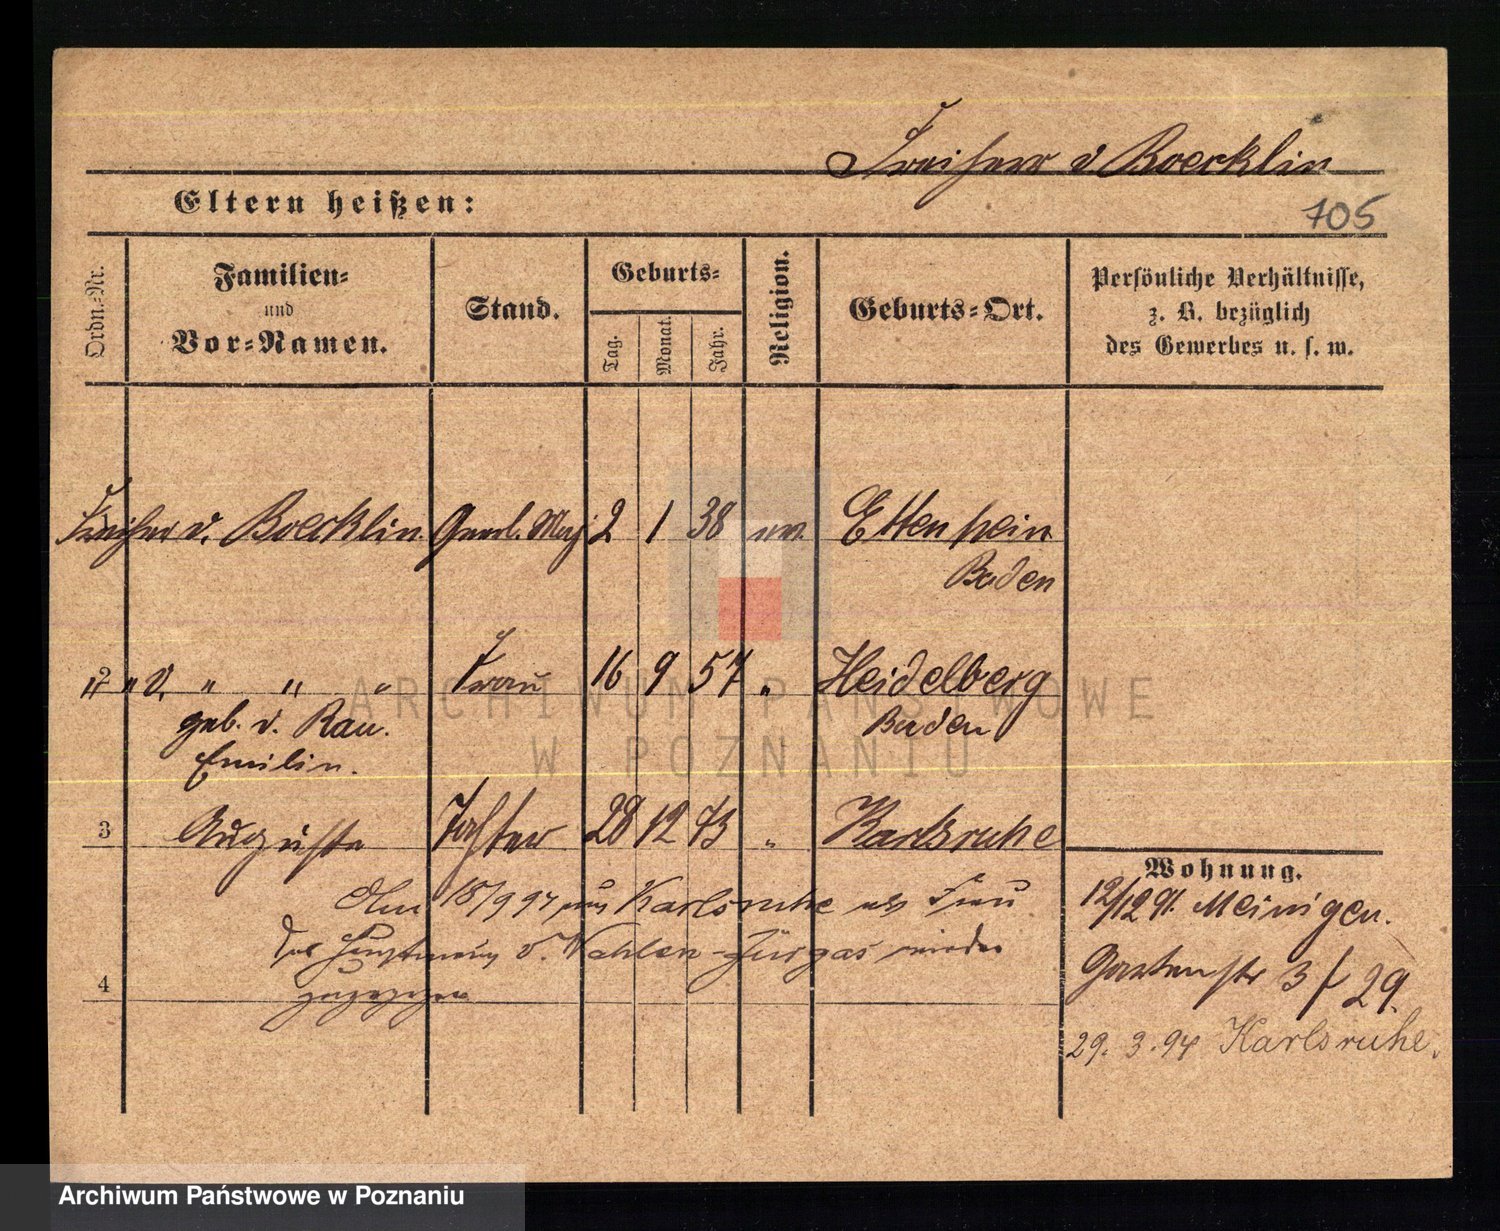 Freiherr v Boecklin
Eltern heißen:
705
Ordn.-Nr.
Familien-
und
Vor-Namen.
Stand.
Geburts-
Tag.
Monat.
Jahr.
Religion.
Geburts-Ort.
Persönliche Verhältnisse,
z. B. bezüglich
des Gewerbes u. s. w.
Freiherr v. Boecklin Genrl. Maj 2 1 38 ev. Ettenheim
Baden
2 " v. " " " Frau 16 9 57 " Heidelberg
geb. v. Rau. Baden
Emilie.
3 Auguste Tochter 28 12 73 " Karlsruhe
Wohnung.
12/12 91. Meinigen.
Gartenstr 3 / 29.
29. 3. 94 Karlsruhe.
Am 18/9 97 aus Karlsruhe als Frau
des Hauptmann v. Wahlen-Jürgas wieder
4 zugezogen
ARCHIWUM PAŃSTWOWE
W POZNANIU
Archiwum Państwowe w Poznaniu